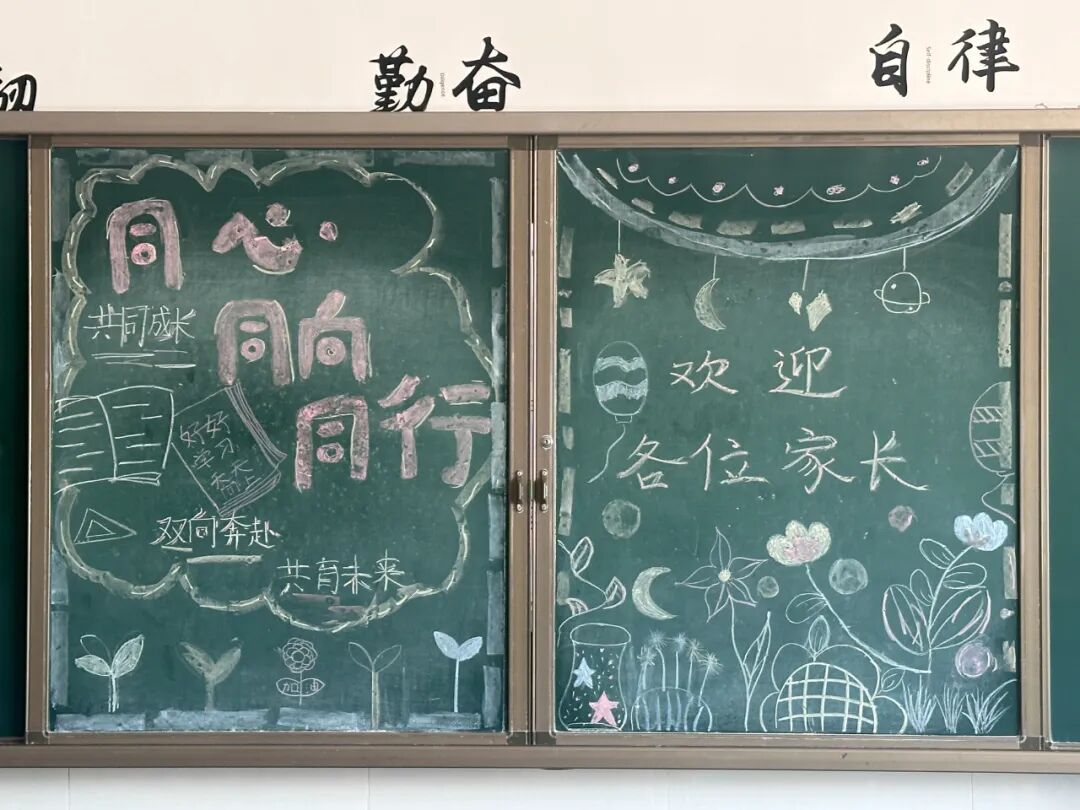 勤奋
Diligence
自律
Self-discipline
同心
同向
同行
共同成长
好好
学习
天天
向上
双向奔赴
共育未来
加油
欢迎
各位家长